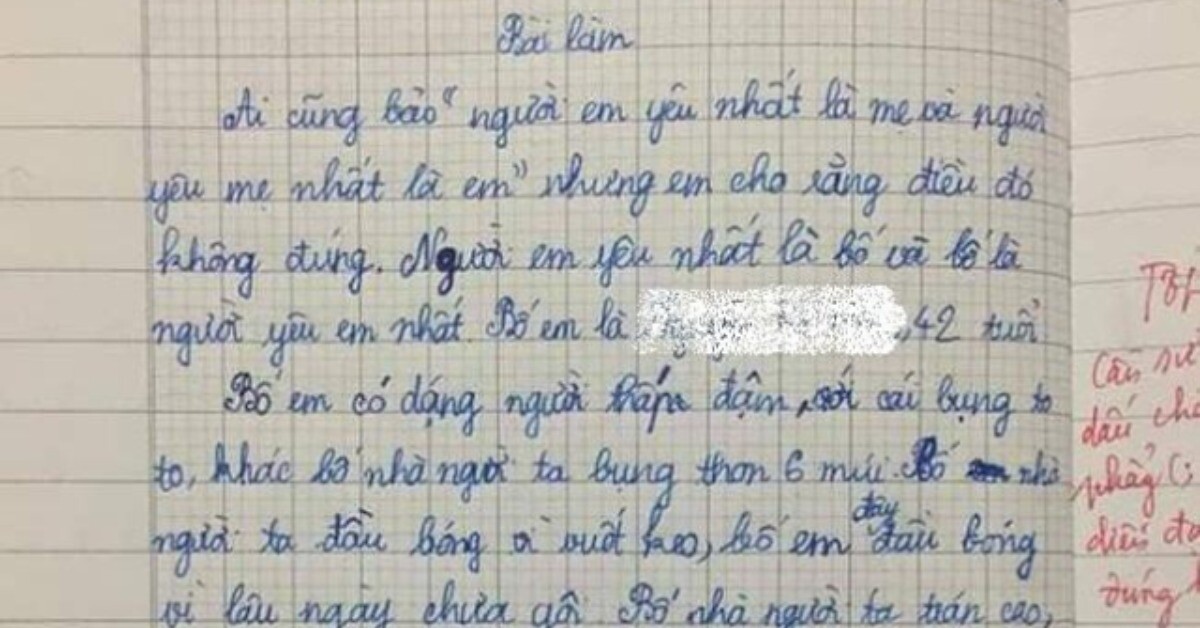 Bài làm
Ai cũng bảo "người em yêu nhất là mẹ và người
yêu mẹ nhất là em" nhưng em cho rằng điều đó
không đúng. Người em yêu nhất là bố và bố là
người yêu em nhất. Bố em là , 42 tuổi
Bố em có dáng người thấp đậm, với cái bụng to
to, khác bố nhà người ta bụng thon 6 múi. Bố nhà
người ta đầu bóng vì vuốt keo, bố em đây đầu bóng
vì lâu ngày chưa gội. Bố nhà người ta trán cao,
Cần sử
dấu ch
phẩy (;
diễn đạ
đúng